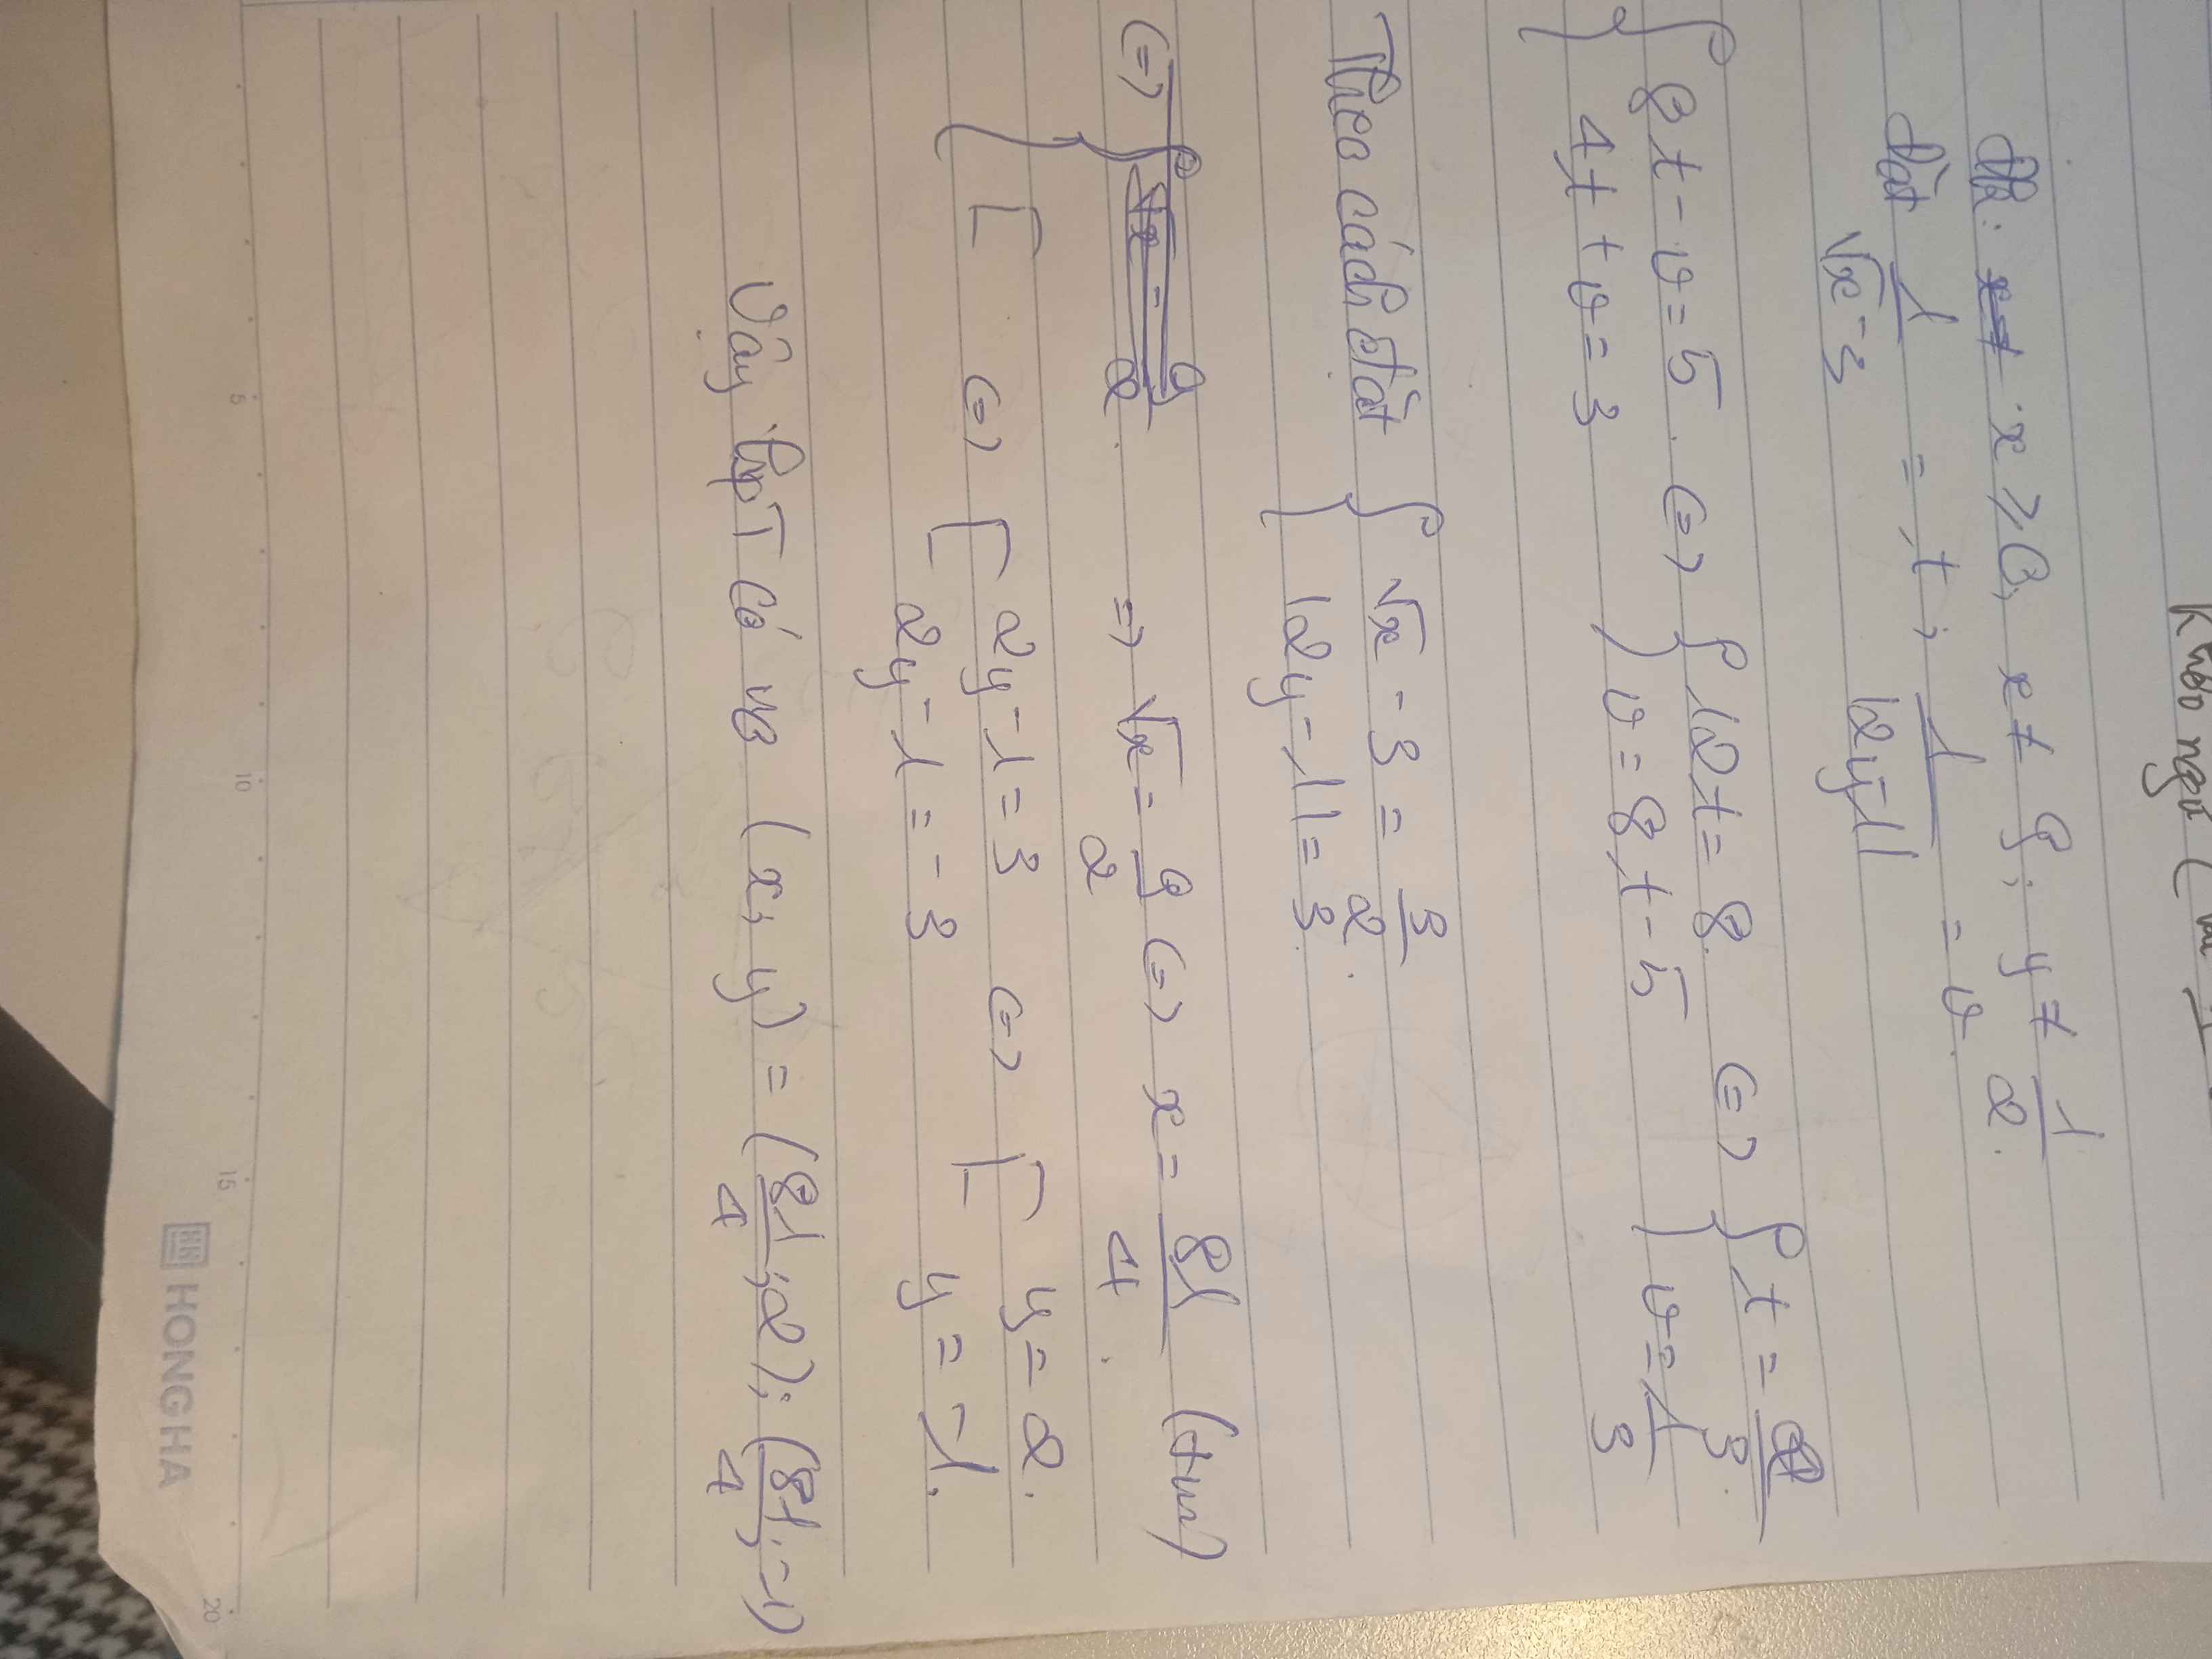 Khôn ngu (
đk: x ≥ 0, x ≠ 9; y ≠ 1/2.
đặt 1/(√x - 3) = t, 1/|2y-1| = v.
{ 8t - v = 5 <=> { 12t = 8 <=> { t = 2/3.
{ 4t + v = 3 { v = 8t - 5 { v = 1/3
Theo cách đặt { √x - 3 = 3/2.
{ |2y - 1| = 3.
<=> { => √x = 9/2 <=> x = 81/4. (tm)
{ [ <=> [ 2y - 1 = 3 <=> [ y = 2.
[ 2y - 1 = -3 y = -1.
Vậy hpT có n0 (x; y) = (81/4; 2); (81/4; -1)
5 10 15 20
HONG HA